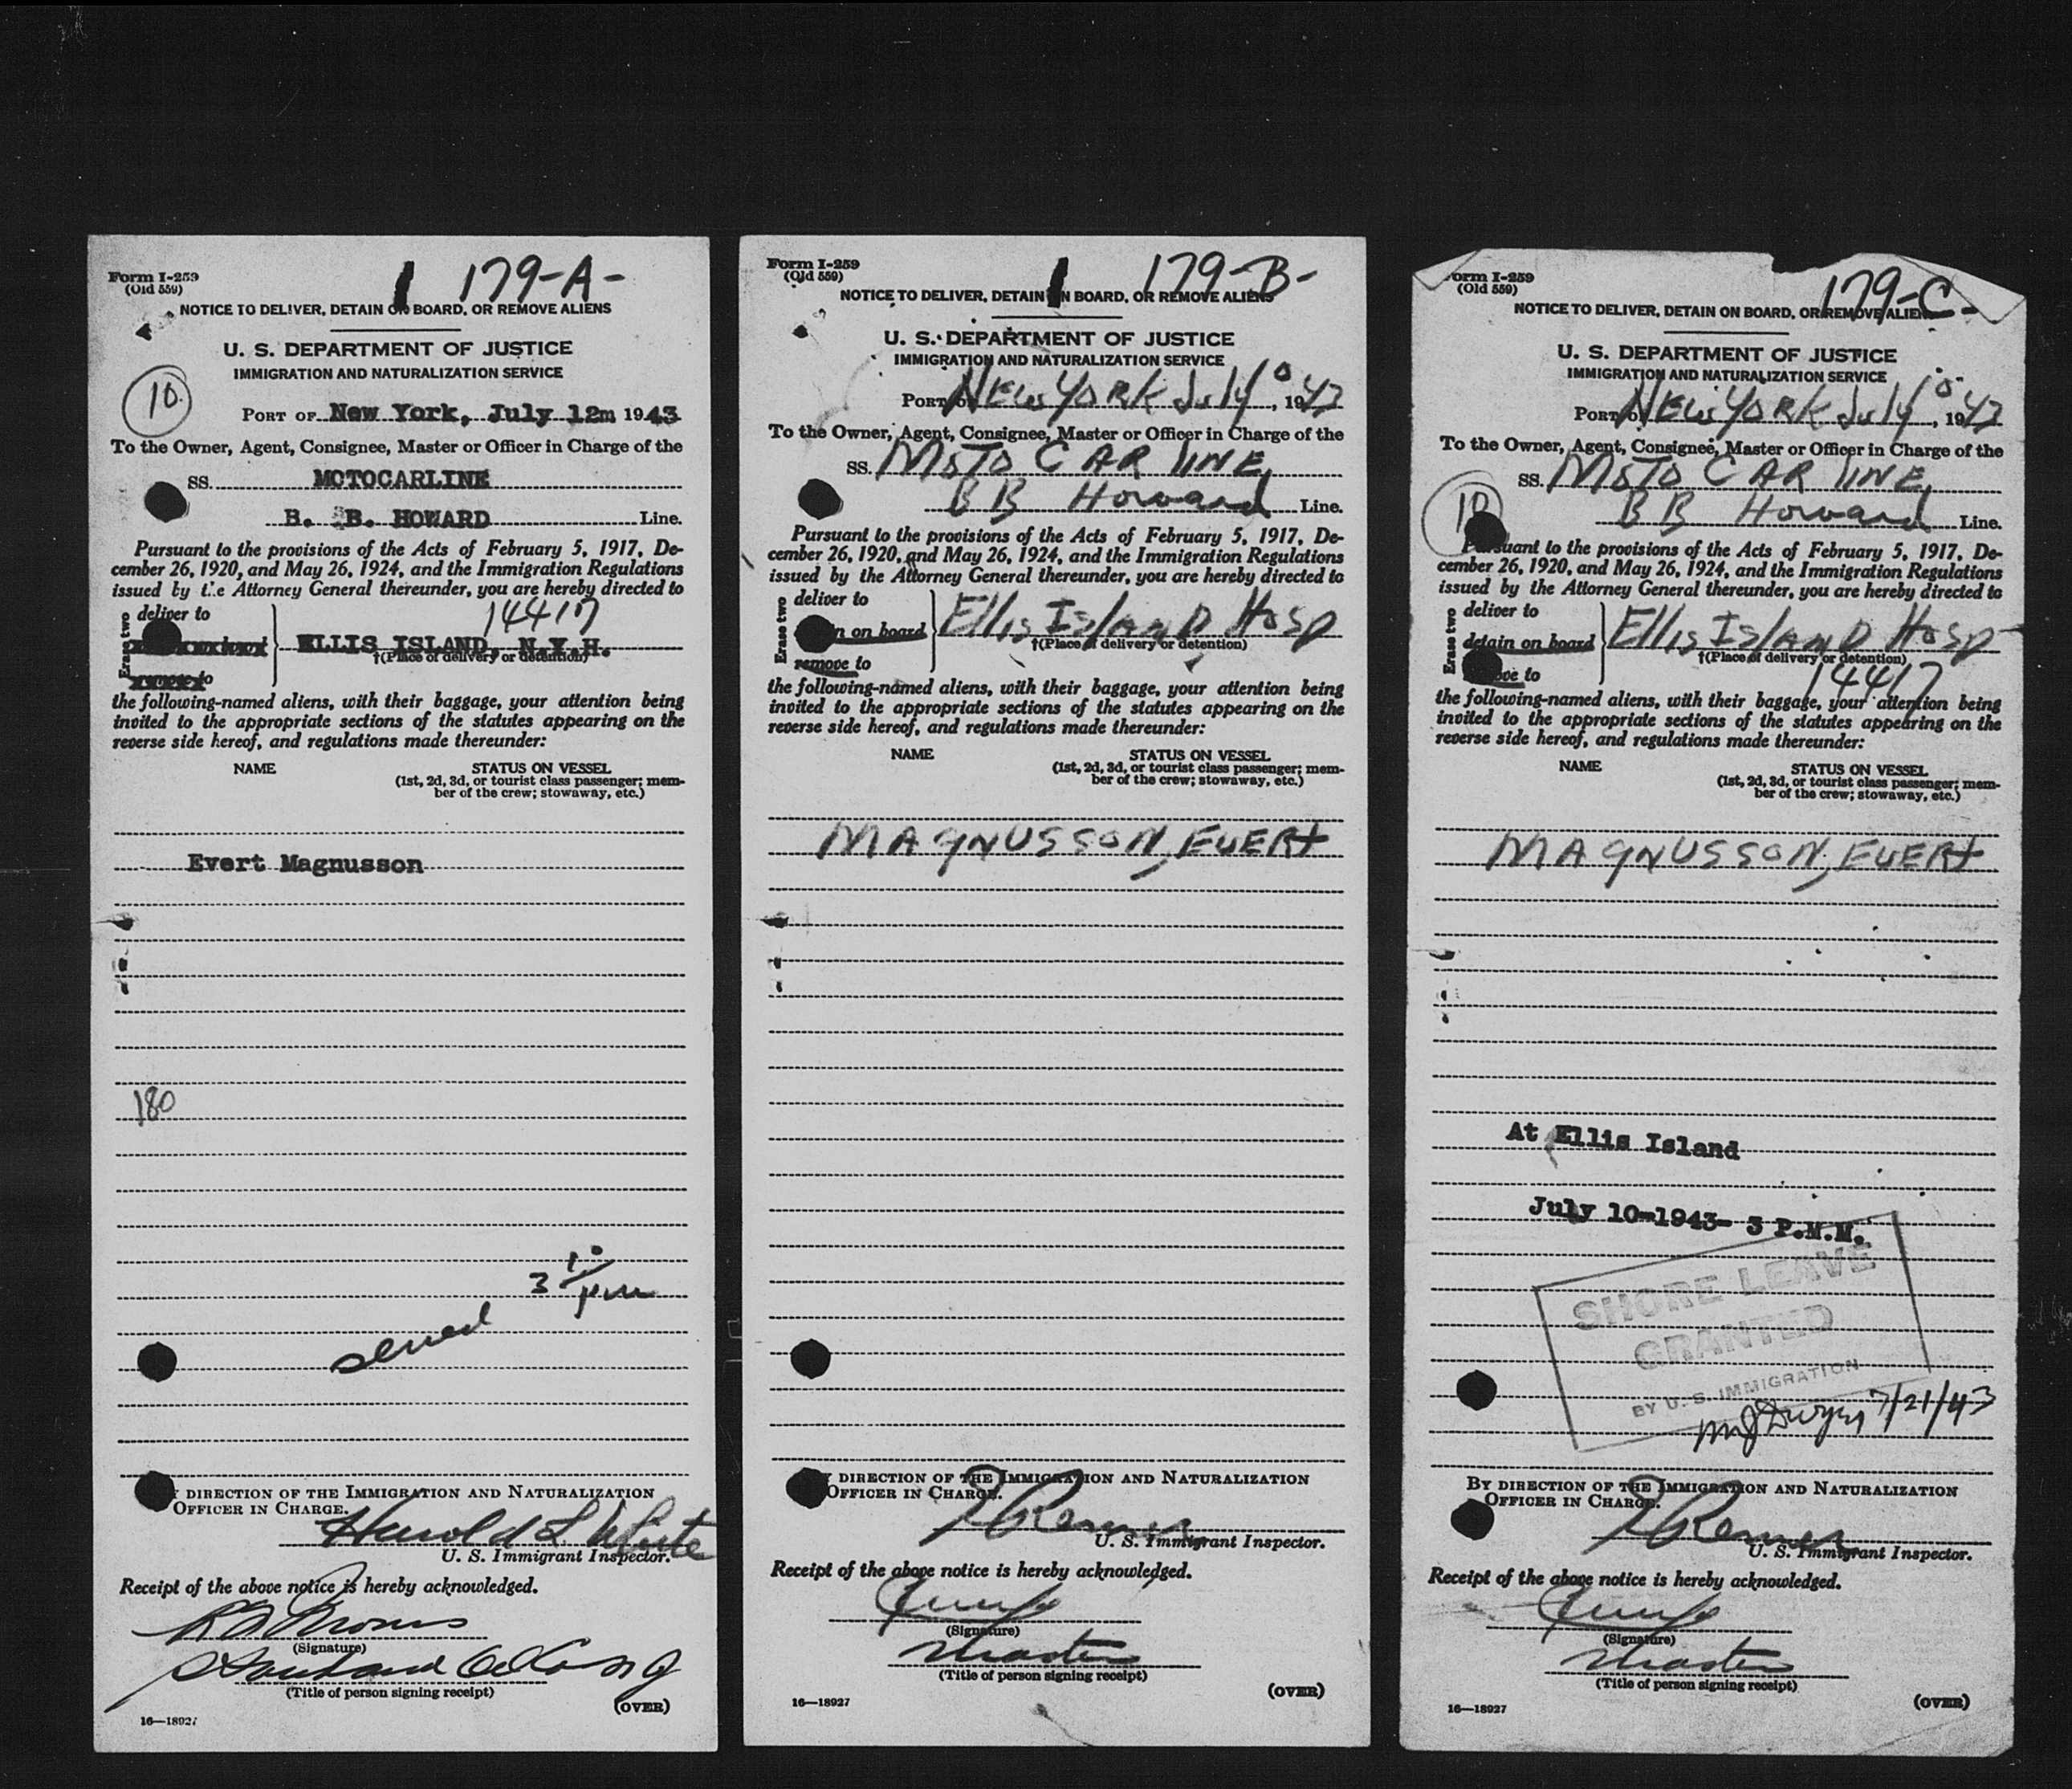 Form I-259
(Old 559)
1 179-A-
NOTICE TO DELIVER, DETAIN ON BOARD, OR REMOVE ALIENS
U. S. DEPARTMENT OF JUSTICE
IMMIGRATION AND NATURALIZATION SERVICE
10
PORT OF New York, July 12m 1943
To the Owner, Agent, Consignee, Master or Officer in Charge of the
SS. MOTOCARLINE
B. B. HOWARD Line.
Pursuant to the provisions of the Acts of February 5, 1917, De-
cember 26, 1920, and May 26, 1924, and the Immigration Regulations
issued by the Attorney General thereunder, you are hereby directed to
14417
Erase two
deliver to
ELLIS ISLAND, N.Y.H.
†(Place of delivery or detention)
remove to
the following-named aliens, with their baggage, your attention being
invited to the appropriate sections of the statutes appearing on the
reverse side hereof, and regulations made thereunder:
NAME STATUS ON VESSEL
(1st, 2d, 3d, or tourist class passenger; mem-
ber of the crew; stowaway, etc.)
Evert Magnusson
180
3 10/pm
served
DIRECTION OF THE IMMIGRATION AND NATURALIZATION
OFFICER IN CHARGE.
Harold L White
U. S. Immigrant Inspector.
Receipt of the above notice is hereby acknowledged.
(Signature)
(Title of person signing receipt)
(OVER)
16—18927
Form I-259
(Old 559)
1 179-B-
NOTICE TO DELIVER, DETAIN ON BOARD, OR REMOVE ALIENS
U. S. DEPARTMENT OF JUSTICE
IMMIGRATION AND NATURALIZATION SERVICE
PORT OF NEW YORK July 10, 1943
To the Owner, Agent, Consignee, Master or Officer in Charge of the
SS. MOTO CAR LINE
B B Howard Line.
Pursuant to the provisions of the Acts of February 5, 1917, De-
cember 26, 1920, and May 26, 1924, and the Immigration Regulations
issued by the Attorney General thereunder, you are hereby directed to
Erase two
deliver to
on board
Ellis ISLAND Hosp
†(Place of delivery or detention)
remove to
the following-named aliens, with their baggage, your attention being
invited to the appropriate sections of the statutes appearing on the
reverse side hereof, and regulations made thereunder:
NAME STATUS ON VESSEL
(1st, 2d, 3d, or tourist class passenger; mem-
ber of the crew; stowaway, etc.)
MAGNUSSON, EVERT
DIRECTION OF THE IMMIGRATION AND NATURALIZATION
OFFICER IN CHARGE.
U. S. Immigrant Inspector.
Receipt of the above notice is hereby acknowledged.
(Signature)
Master
(Title of person signing receipt)
(OVER)
16—18927
Form I-259
(Old 559)
179-C-
NOTICE TO DELIVER, DETAIN ON BOARD, OR REMOVE ALIENS
U. S. DEPARTMENT OF JUSTICE
IMMIGRATION AND NATURALIZATION SERVICE
PORT OF NEW YORK July 10, 1943
To the Owner, Agent, Consignee, Master or Officer in Charge of the
SS. MOTO CAR LINE
10
B B Howard Line.
Pursuant to the provisions of the Acts of February 5, 1917, De-
cember 26, 1920, and May 26, 1924, and the Immigration Regulations
issued by the Attorney General thereunder, you are hereby directed to
Erase two
deliver to
detain on board
Ellis ISLAND Hosp
†(Place of delivery or detention)
remove to
14417
the following-named aliens, with their baggage, your attention being
invited to the appropriate sections of the statutes appearing on the
reverse side hereof, and regulations made thereunder:
NAME STATUS ON VESSEL
(1st, 2d, 3d, or tourist class passenger; mem-
ber of the crew; stowaway, etc.)
MAGNUSSON, EVERT
At Ellis Island
July 10-1943- 3 P.M.M.
SHORE LEAVE
GRANTED
BY U. S. IMMIGRATION
MJ Dwyer 7/21/43
BY DIRECTION OF THE IMMIGRATION AND NATURALIZATION
OFFICER IN CHARGE.
U. S. Immigrant Inspector.
Receipt of the above notice is hereby acknowledged.
(Signature)
Master
(Title of person signing receipt)
(OVER)
16—18927